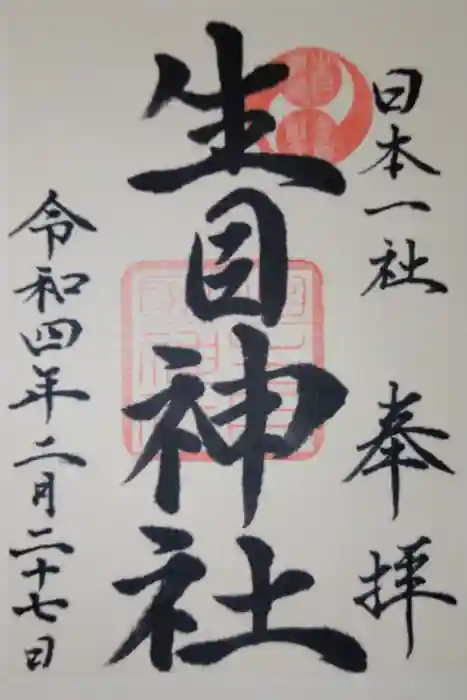 日本一社　奉拝
生目神社
令和四年二月二十七日